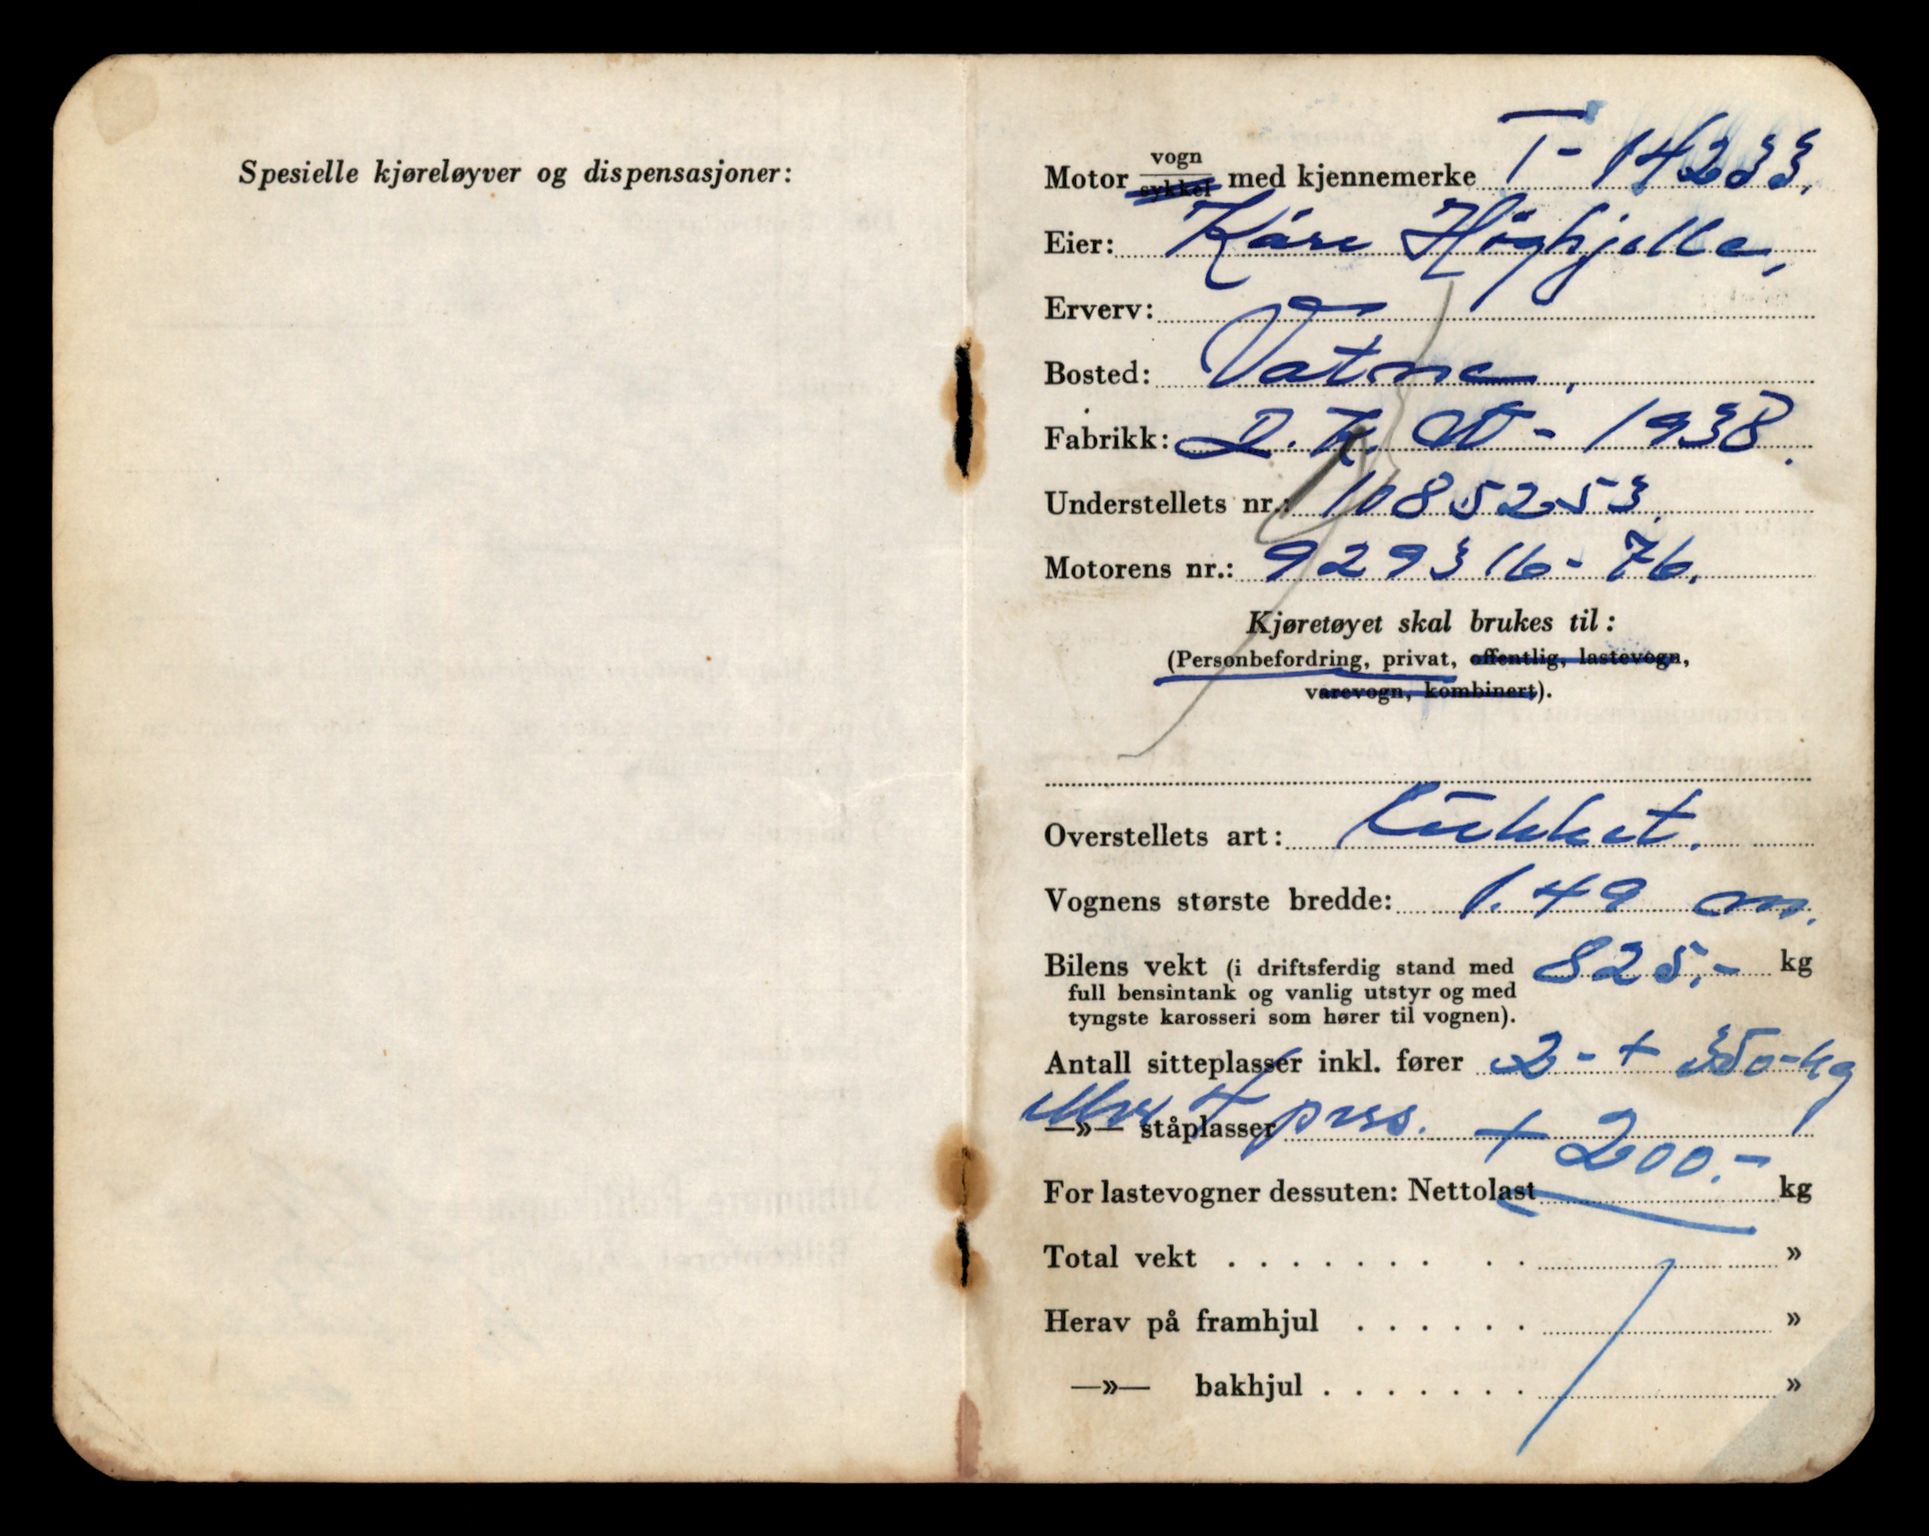 Spesielle kjøreløyver og dispensasjoner:
Motor vogn
sykkel med kjennemerke T- 14233.
Eier: Kåre Høghjelle,
Erverv:
Bosted: Vatne,
Fabrikk: D.K.W - 1938.
Understellets nr.: 1085253.
Motorens nr.: 929316-76.
Kjøretøyet skal brukes til:
(Personbefordring, privat, offentlig, lastevogn,
varevogn, kombinert).
Overstellets art: lukket.
Vognens største bredde: 1.49 m.
Bilens vekt (i driftsferdig stand med 825,- kg
full bensintank og vanlig utstyr og med
tyngste karosseri som hører til vognen).
Antall sitteplasser inkl. fører 2- + 350-kg
—»— ståplasser 4 pers. + 200.-
For lastevogner dessuten: Nettolast kg
Total vekt . . . . . . . . . »
Herav på framhjul . . . . . . »
—»— bakhjul . . . . . . . »